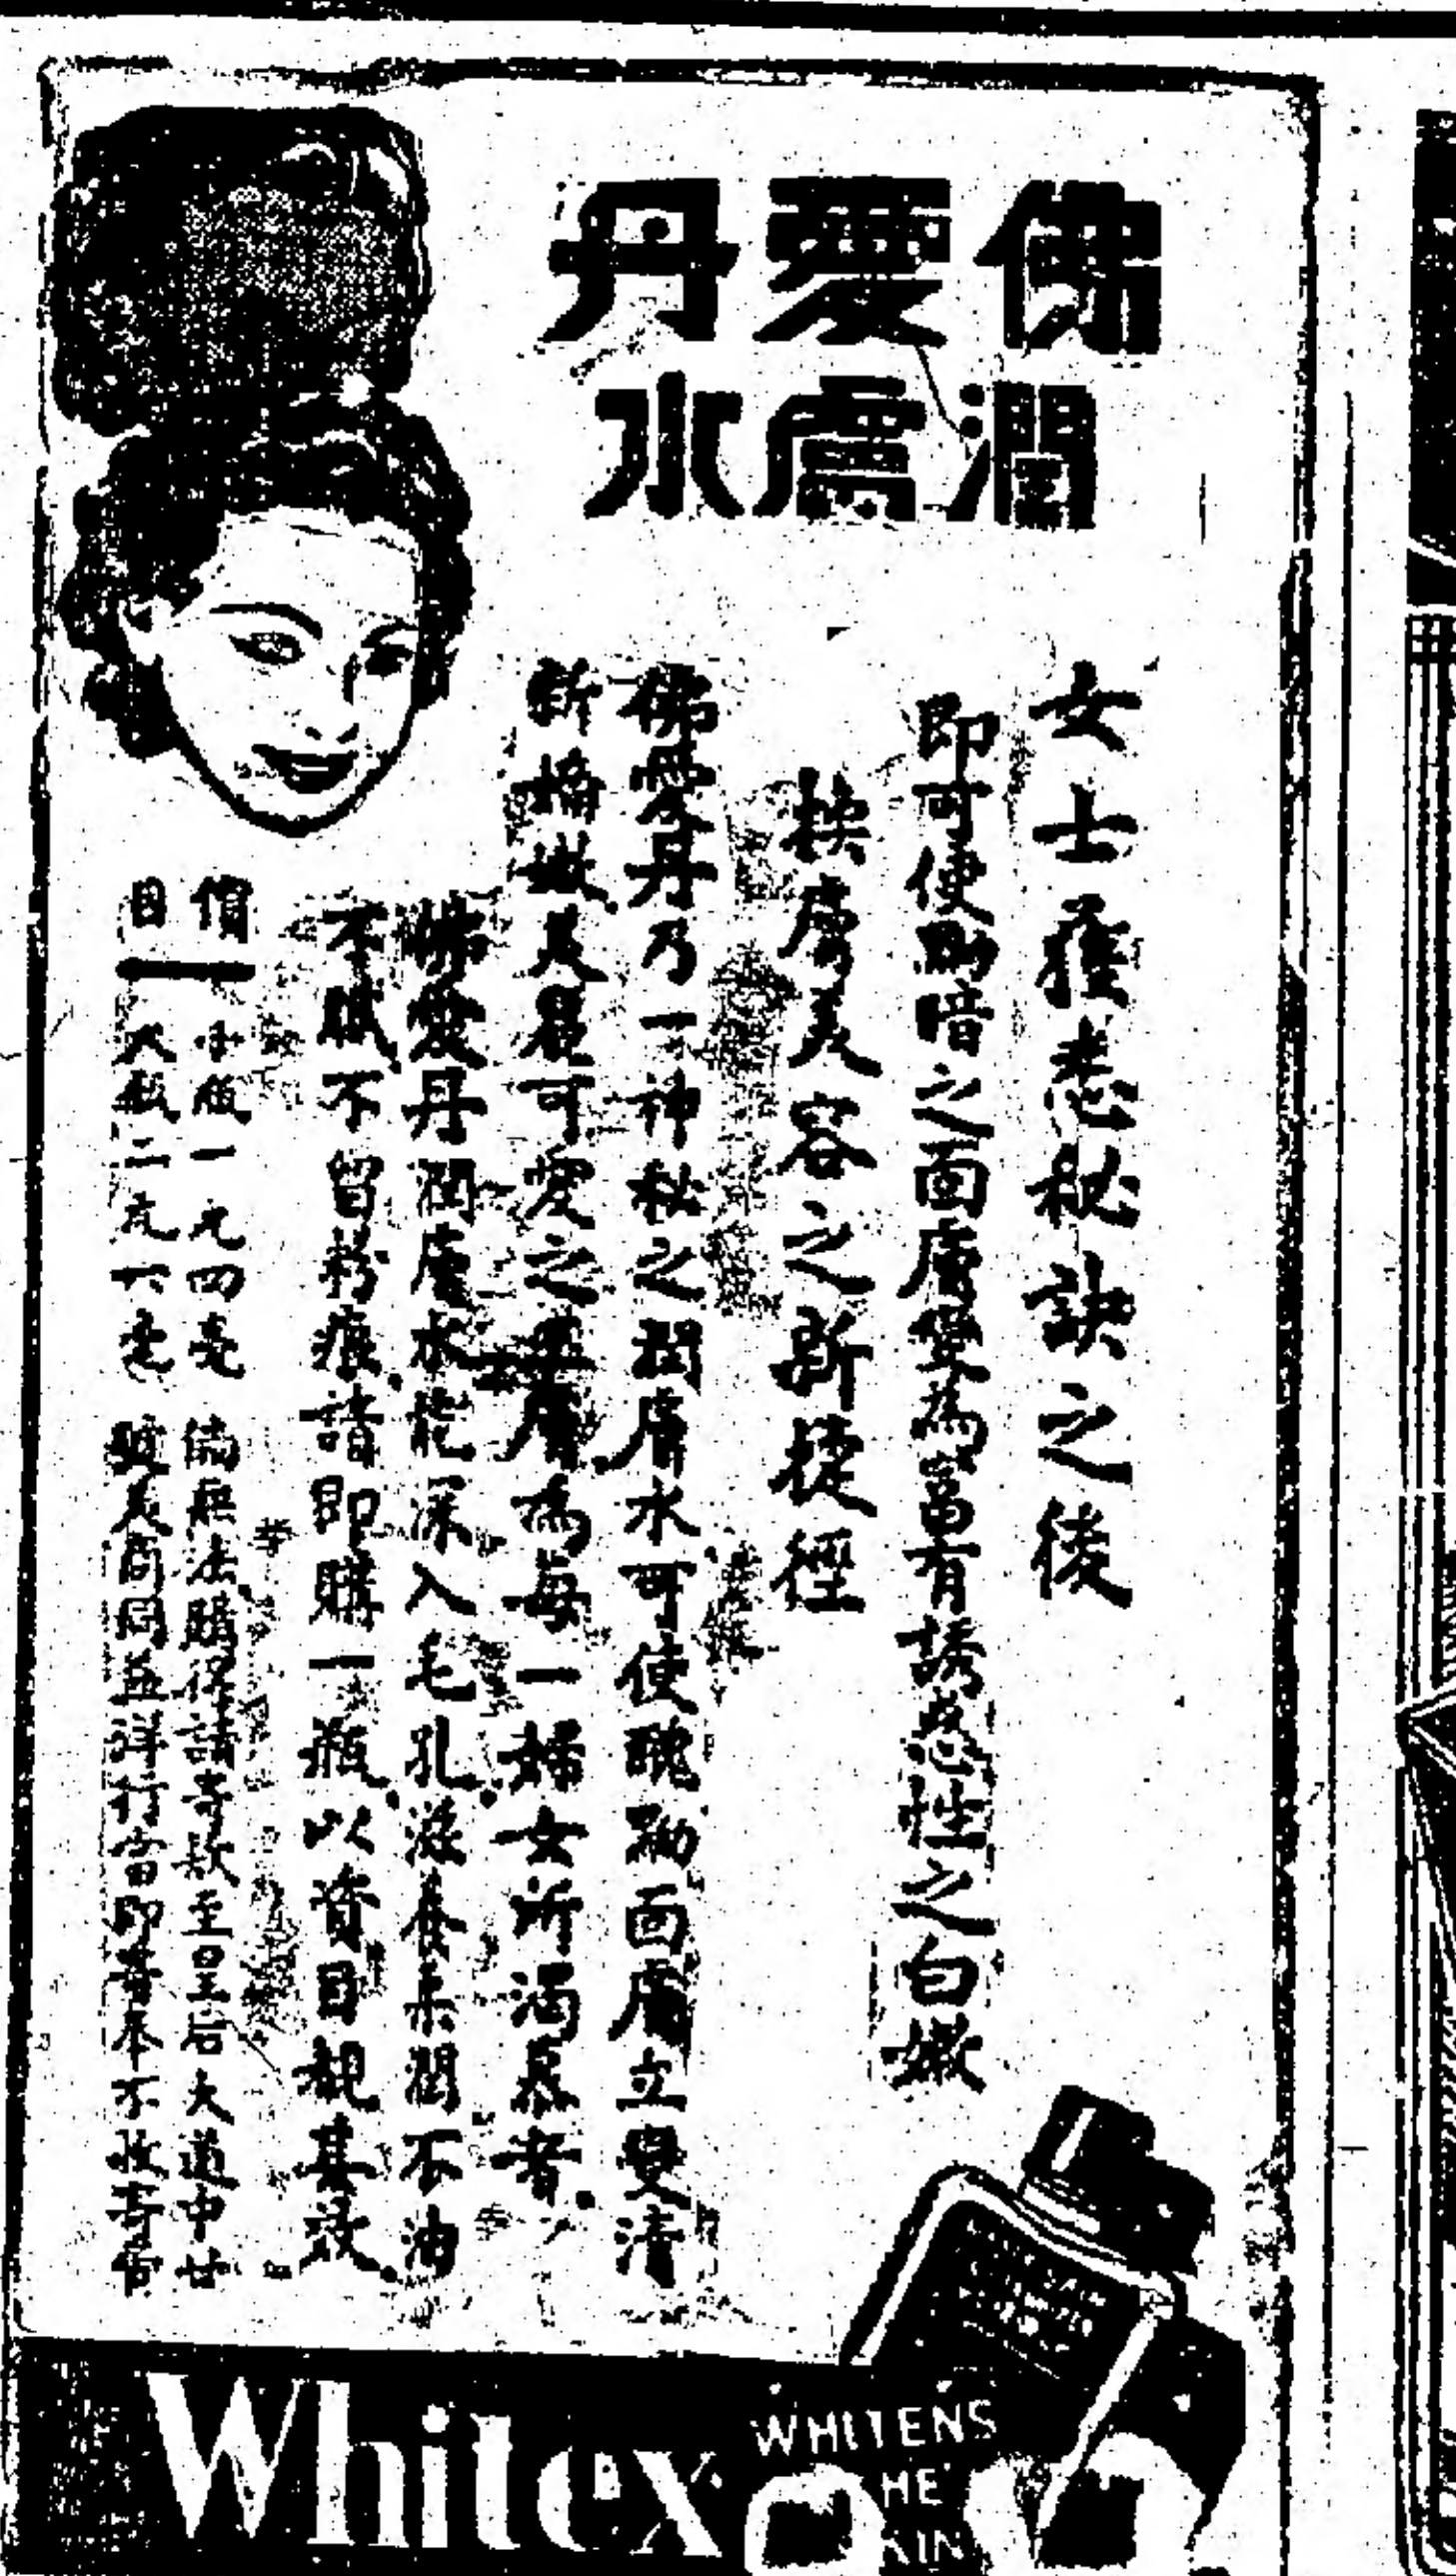 佛愛丹
潤膚水
女士獲悉秘訣之後
即可使黝暗之面膚變為富有誘惑性之白嫩
膚美容之新捷徑
佛愛丹乃一神秘之潤膚水可使醜黝面膚立變清
新嬌嫩美麗可愛之膚為每一婦女所渴慕者.
佛愛丹潤膚水能深入毛孔.滋養柔潤不油
不膩不留粉痕.請即購一瓶.以資目覩其效.
價目
小瓶一元四毫
大瓶二元六毫
倘無法購得請寄款至皇后大道中廿
號美商同益洋行當即寄奉不收寄費
Whitex
WHITENS
HE
KIN